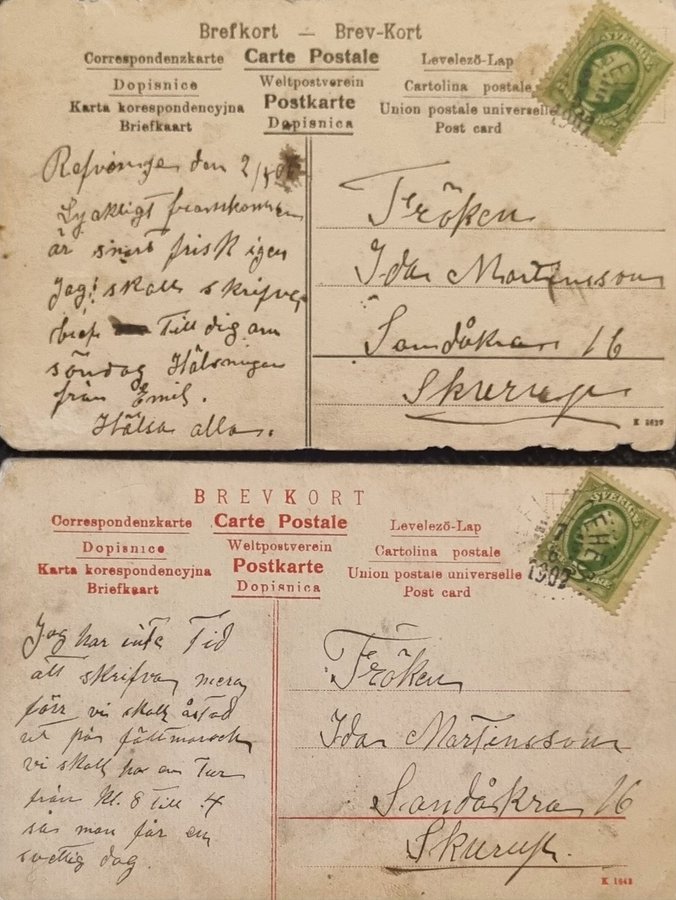 Brefkort — Brev-Kort
Correspondenzkarte Carte Postale Levelező-Lap
Dopisnice Weltpostverein Cartolina postale
Karta korespondencyjna Postkarte Union postale universelle
Briefkaart Dopisnica Post card
SVERIGE
1907
den 2/
Lyckligt framkommen
är snart frisk igen
Jag! skall skrifva
bref Till dig om
söndag Hälsningen
från Emil.
Hälsa alla.
Fröken
Ida Martensson
Sandåkra 16
Skurup
K
BREVKORT
Correspondenzkarte Carte Postale Levelező-Lap
Dopisnice Weltpostverein Cartolina postale
Karta korespondencyjna Postkarte Union postale universelle
Briefkaart Dopisnica Post card
SVERIGE
1907
Jag har inte Tid
att skrifva mera
förr vi skall åstad
ut på fältmarsch
vi skall ha en Tur
från Kl. 8 Till 4
så man får en
svettig dag.
Fröken
Ida Martensson
Sandåkra 16
Skurup.
K 1642